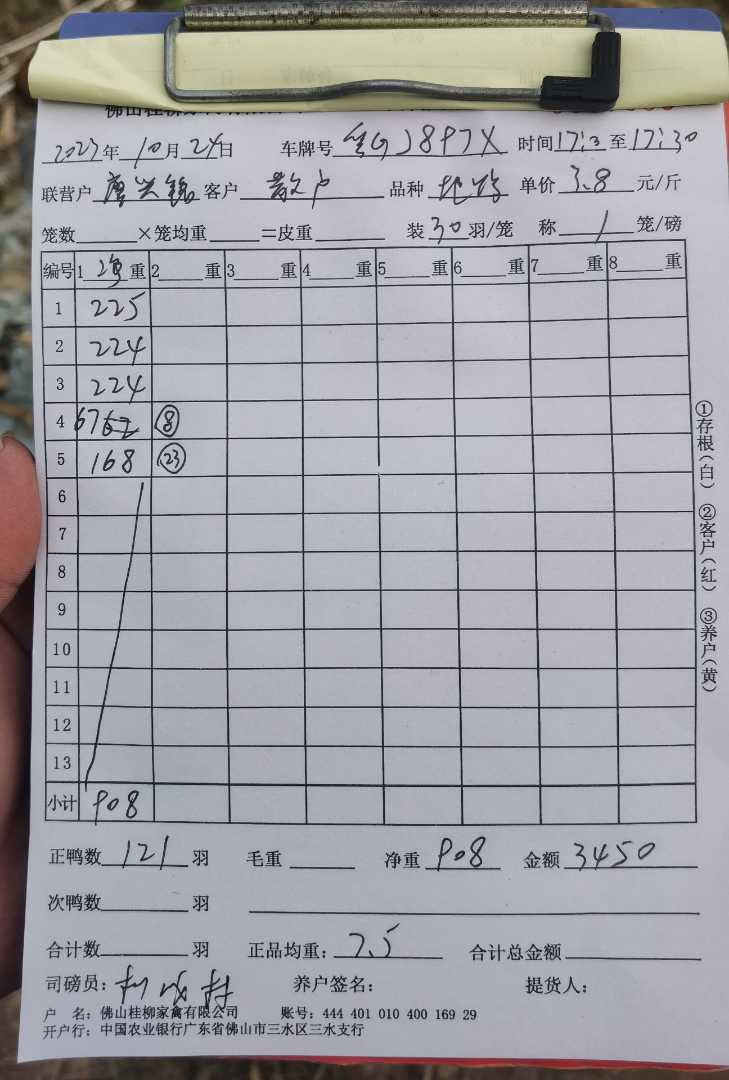 2023年10月24日 车牌号 J897X 时间17:13至17:30
联营户 客户 散户 品种 单价 3.8 元/斤
笼数 ×笼均重 =皮重 装30羽/笼 称 1 笼/磅
编号 1 净 重 2 重 3 重 4 重 5 重 6 重 7 重 8 重
1 225
2 224
3 224
4 67 ⑧
5 168 ㉓
6
7
8
9
10
11
12
13
小计 908
正鸭数 121 羽 毛重 净重 908 金额 3450
次鸭数 羽
合计数 羽 正品均重: 7.5 合计总金额
司磅员: 养户签名: 提货人:
户 名: 佛山桂柳家禽有限公司 账号: 444 401 010 400 169 29
开户行: 中国农业银行广东省佛山市三水区三水支行
①存根(白) ②客户(红) ③养户(黄)